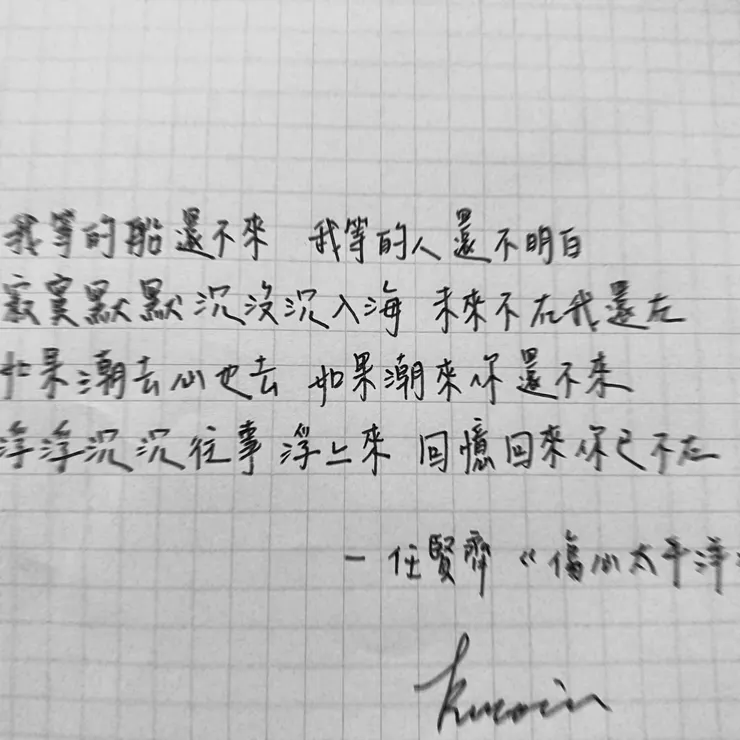 我等的船還不來 我等的人還不明白
寂寞默默沉沒沉入海 未來不在我還在
如果潮去心也去 如果潮來你還不來
浮浮沉沉往事浮上來 回憶回來你已不在
－任賢齊《傷心太平洋》